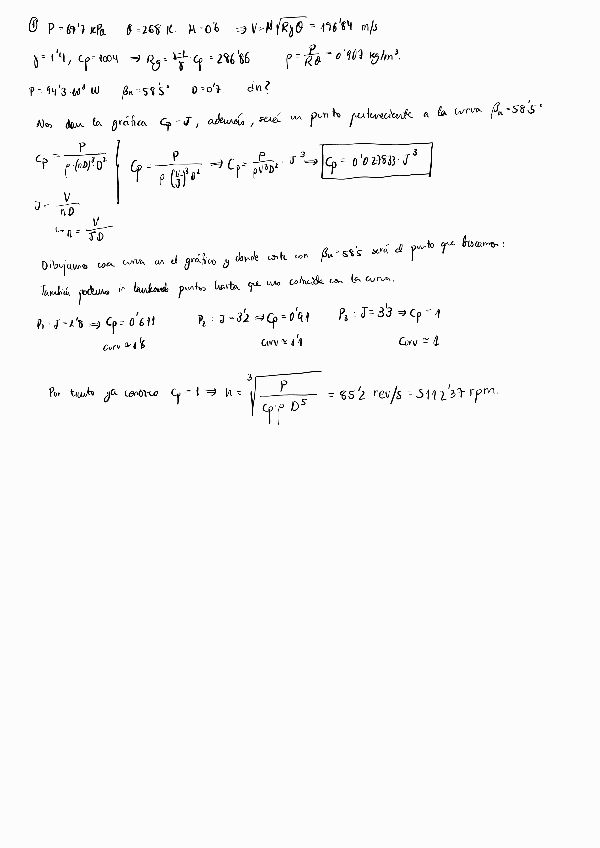 ① P = 69'7 kPa θ = 268 K. M = 0'6 ⇒ V = M√RgΘ = 196'84 m/s
γ = 1'4, Cp = 1004 → Rg = γ-1/γ · Cp = 286'86 ρ = P/RΘ = 0'907 kg/m³.
P = 94'3·10³ W βn = 58'5° D = 0'7 ¿n?
Nos dan la gráfica Cp - J, además, será un punto perteneciente a la curva βn = 58'5°
Cp = P/ρ·(nD)³D² Cp = P/ρ(V/J)³D² ⇒ Cp = P/ρV³D² · J³ ⇒ Cp = 0'027833·J³
J = V/nD
↳ n = V/JD
Dibujamos esa curva en el gráfico y donde corte con βn = 58'5 será el punto que buscamos:
También podemos ir tanteando puntos hasta que uno coincida con la curva.
P₁: J = 2'8 ⇒ Cp = 0'611 P₂: J = 3'2 ⇒ Cp = 0'91 P₃: J = 3'3 ⇒ Cp = 1
curv ≃ 1'6 curv ≃ 1'1 curv ≃ 1
Por tanto ya conozco Cp = 1 ⇒ n = ³√P/Cp·ρ D⁵ = 85'2 rev/s = 5112'37 rpm.